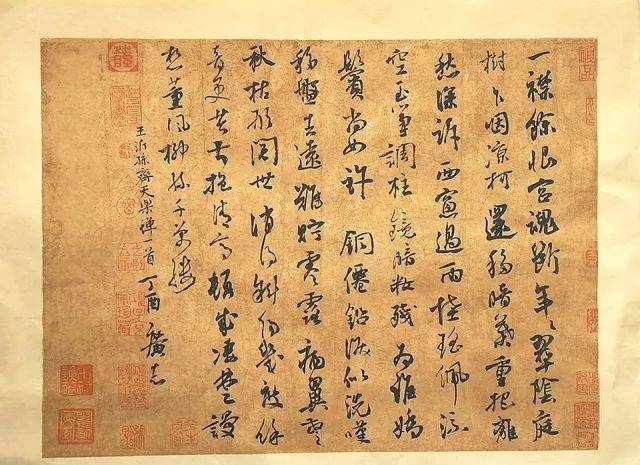 一襟餘恨宫魂斷年々翠陰庭
樹乍咽凉柯還移暗葉重把離
愁深訴西窗過雨怪瑶佩流
空玉筝調柱鏡暗妝殘為誰嬌
鬢尚如許 銅僊鉛淚似洗嘆
移盤去遠難貯零露病翼驚
秋枯形閱世消得斜陽幾度餘
音更苦抱清高頓成凄楚謾
想薰風柳絲千萬縷
王沂孫齊天樂蟬一首 丁酉 廣志